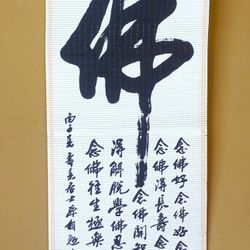 佛
念佛好念佛好念
念佛得長壽念
念佛開智
得解脫學佛恩
念佛往生極樂
丙子
居士